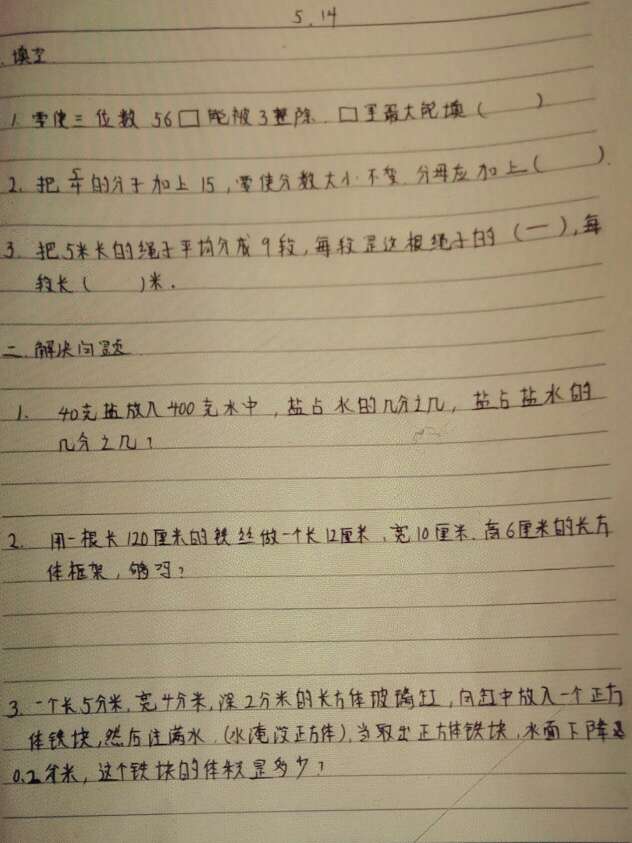 5.14
一.填空
1.要使三位数 56□能被3整除.□里最大能填( )
2.把5/7的分子加上15,要使分数大小不变.分母应加上( ).
3.把5米长的绳子平均分成9段,每段是这根绳子的(—),每
段长( )米.
二.解决问题
1. 40克盐放入400克水中,盐占水的几分之几,盐占盐水的
几分之几?
2. 用一根长120厘米的铁丝做一个长12厘米,宽10厘米.高6厘米的长方
体框架,够吗?
3.一个长5分米,宽4分米,深2分米的长方体玻璃缸,向缸中放入一个正方
体铁块,然后注满水.(水淹没正方体),当取出正方体铁块,水面下降
0.2分米,这个铁块的体积是多少?